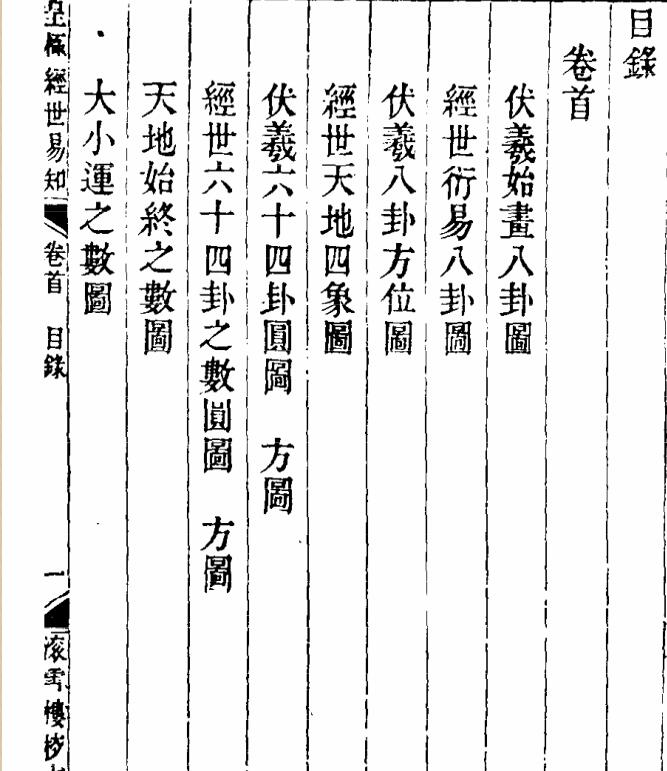 目錄
卷首
伏羲始畫八卦圖
經世衍易八卦圖
伏羲八卦方位圖
經世天地四象圖
伏羲六十四卦圓圖　方圖
經世六十四卦之數圓圖　方圖
天地始終之數圖
大小運之數圖
皇極經世易知　卷首　目錄　一